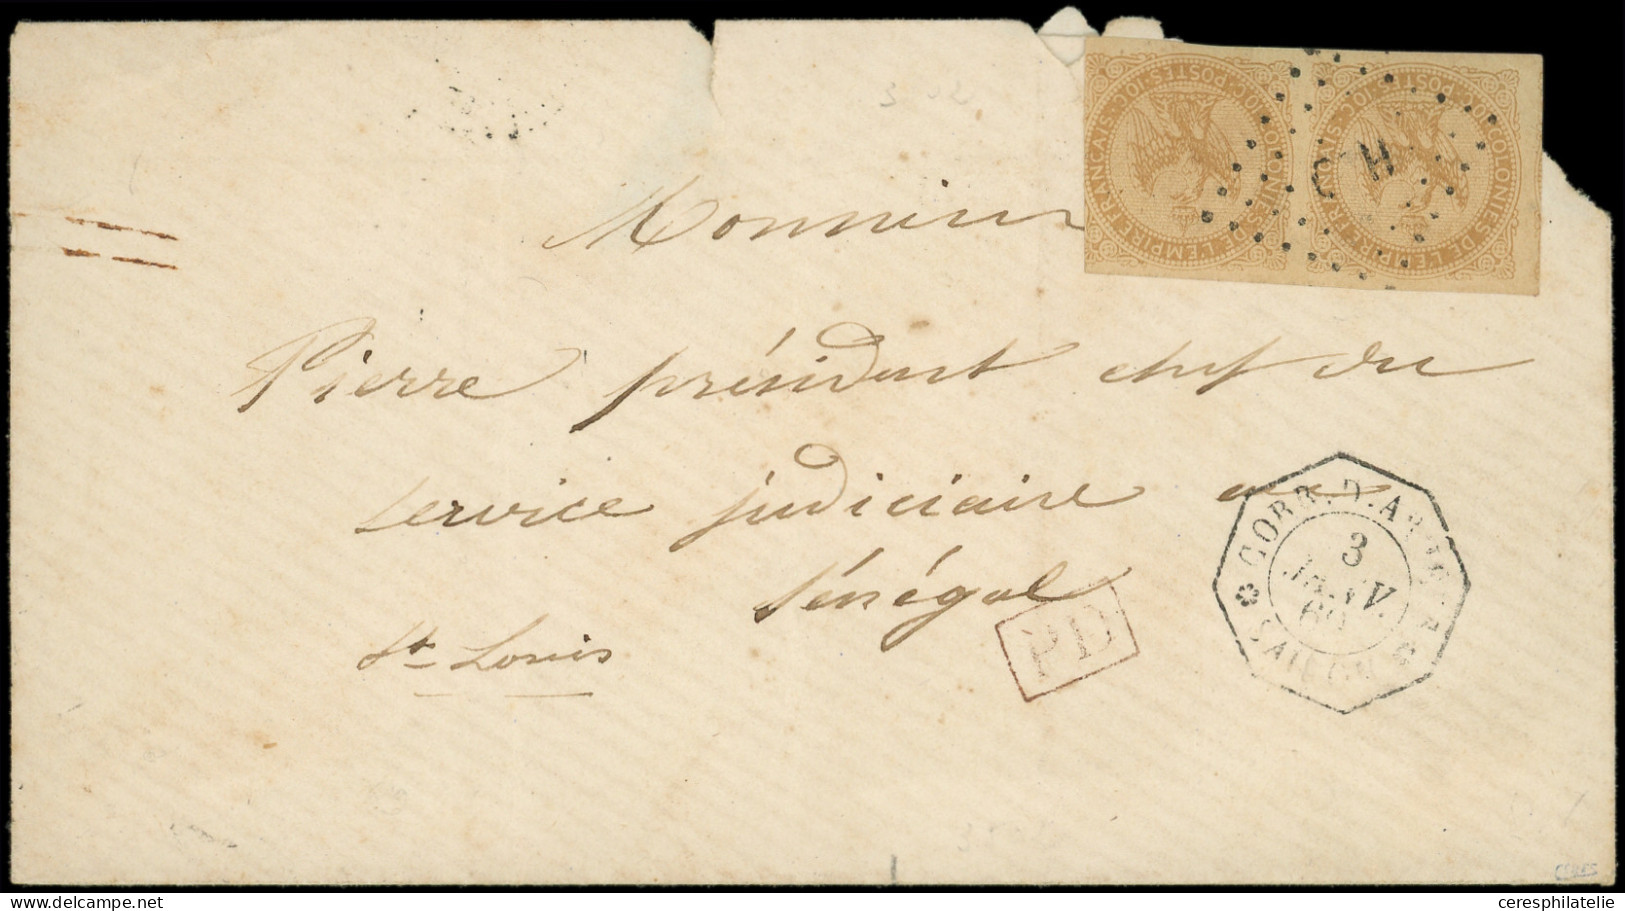 COLONIES DE L'EMPIRE FRANCAIS · POSTES · 10C ·
COLONIES DE L'EMPIRE FRANCAIS · POSTES · 10C ·
Monsieur
Pierre président chef du
service judiciaire au
Sénégal
St Louis
PD
CORR. D. ARMEES
3
JANV.
SAIGON
CERES
ceresphilatelie